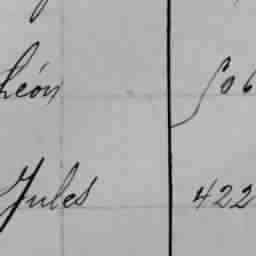 Léon 506
Jules 422